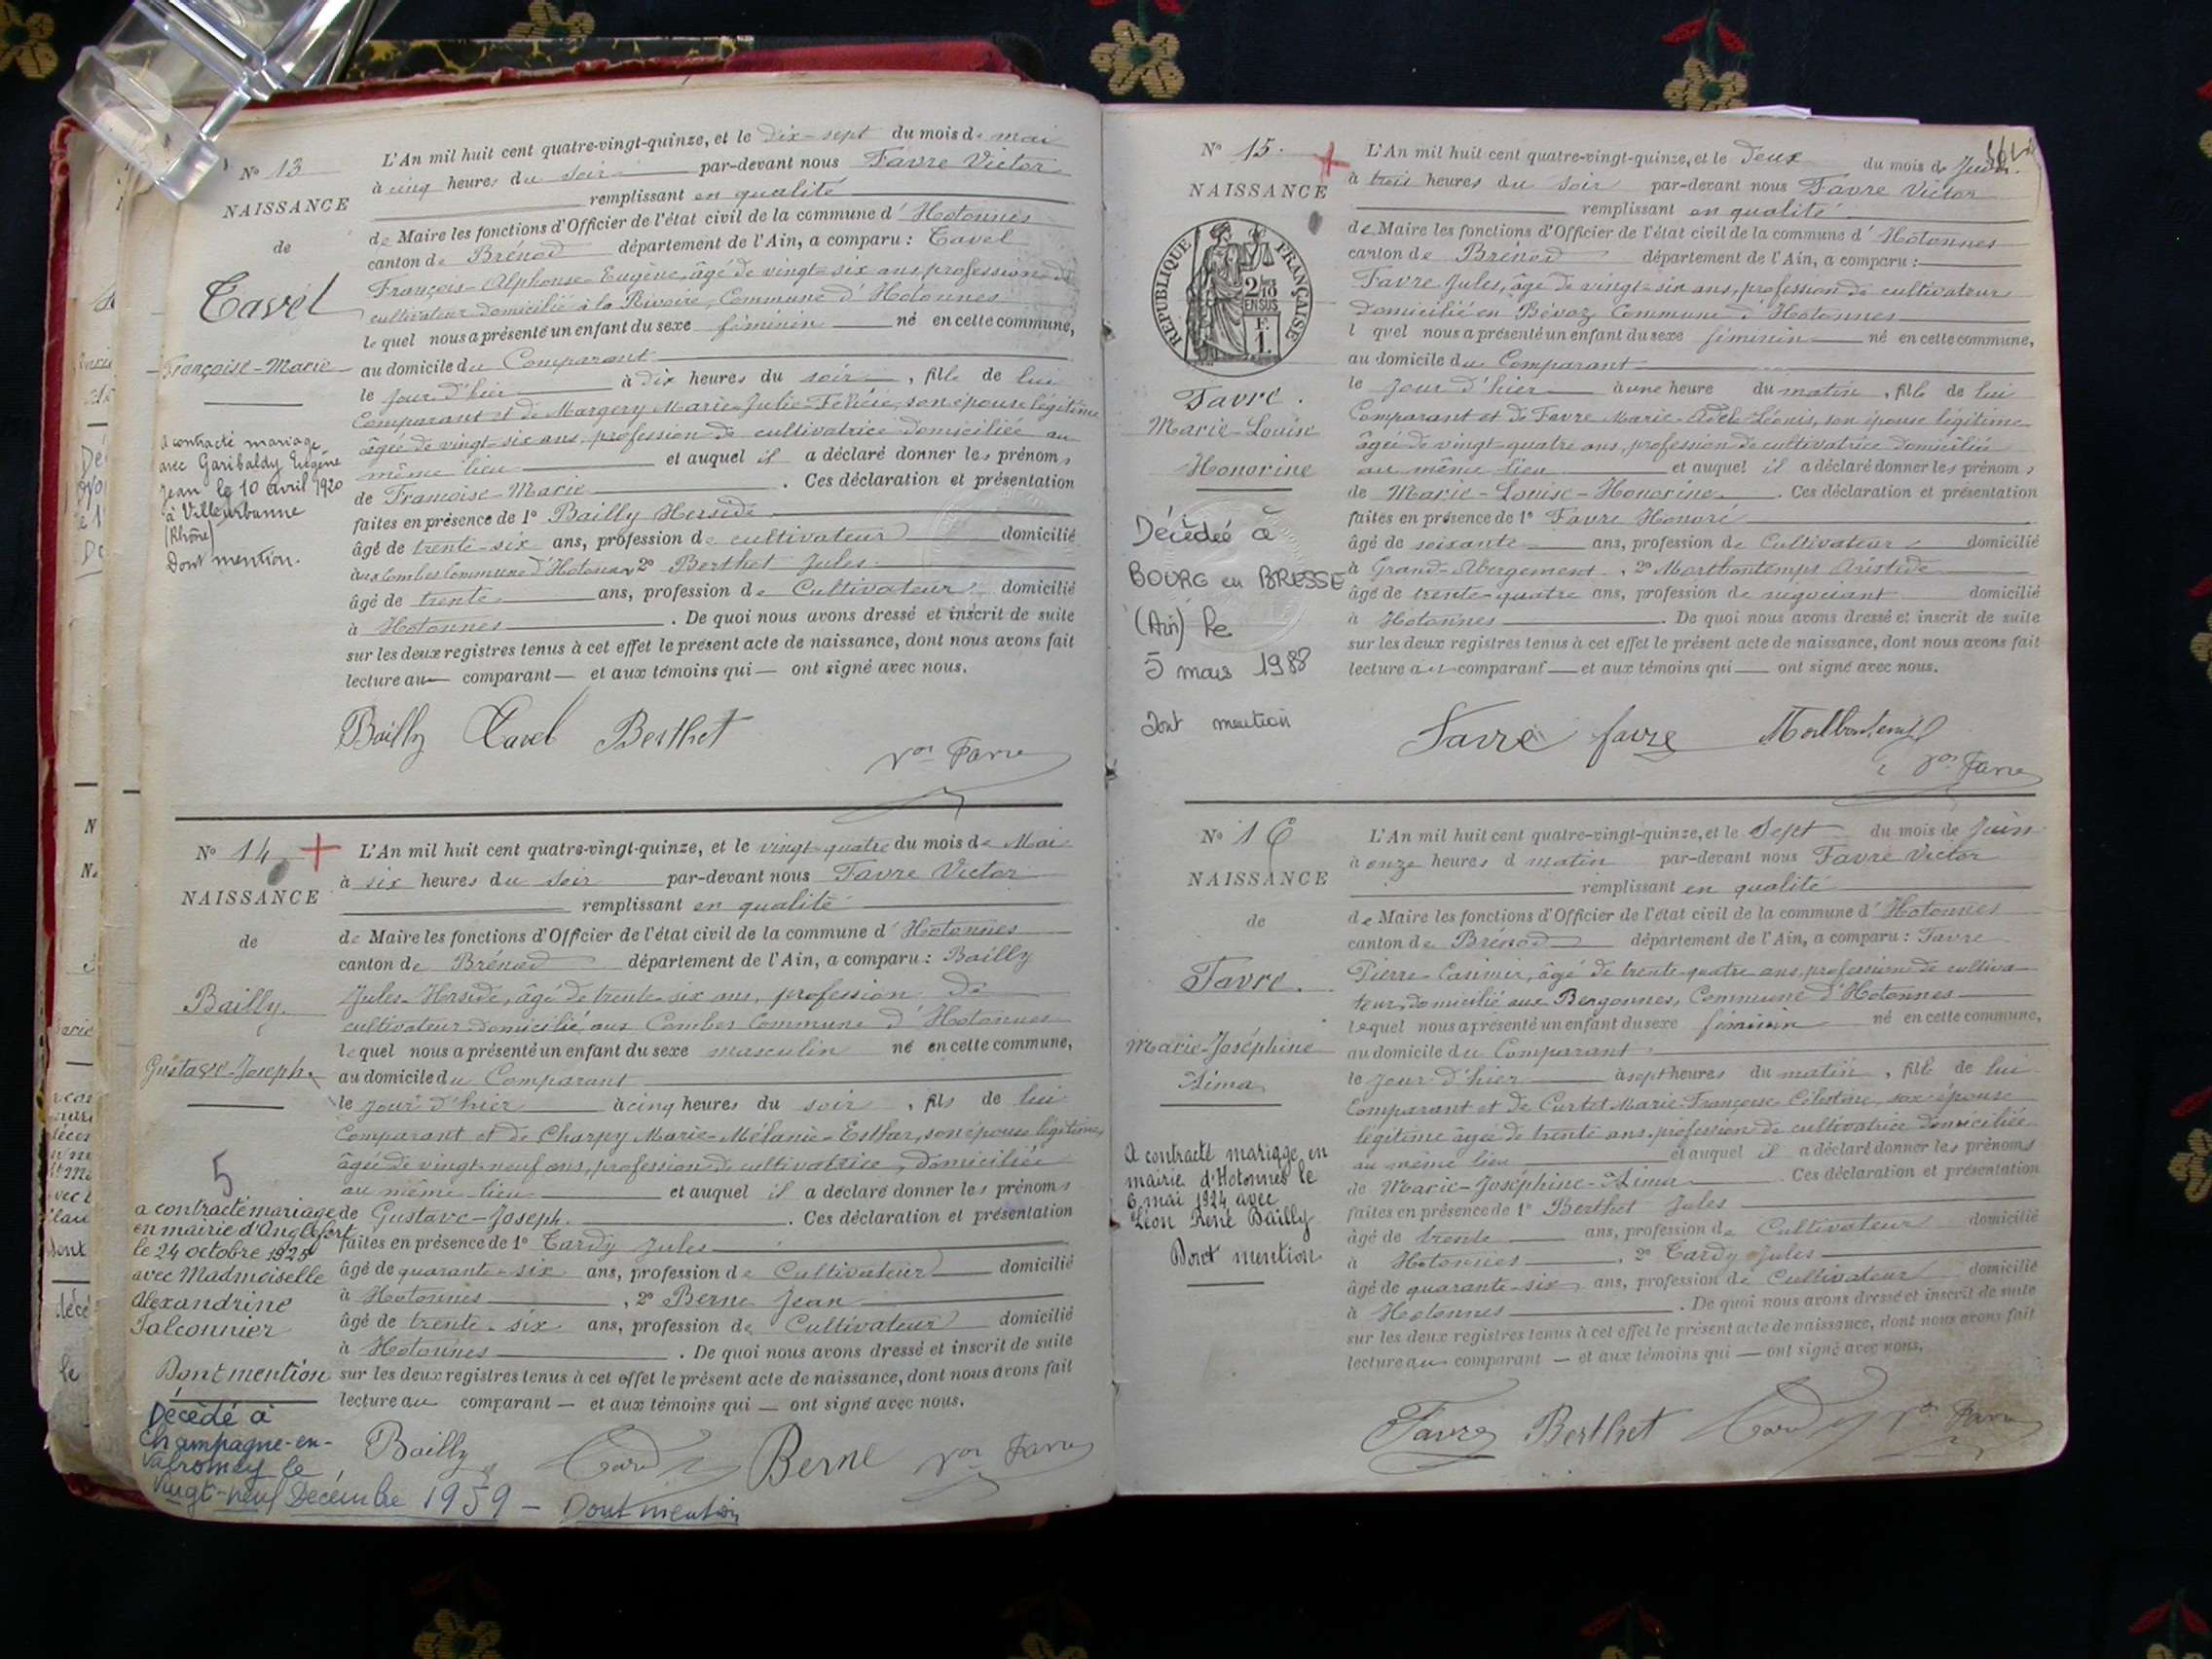 N° 13
NAISSANCE
de
Tavel
Françoise-Marie
a contracté mariage
avec Garibaldy Eugène
Jean le 10 avril 1920
à Villeurbanne
(Rhône)
Dont mention.
L'An mil huit cent quatre-vingt-quinze, et le dix-sept du mois de mai
à cinq heures du soir par-devant nous Favre Victor
remplissant en qualité
de Maire les fonctions d'Officier de l'état civil de la commune d'Hotonnes
canton de Brénod département de l'Ain, a comparu : Tavel
François-Alphonse-Eugène, âgé de vingt-six ans, profession de
cultivateur domicilié à la Rivoire, Commune d'Hotonnes
lequel nous a présenté un enfant du sexe féminin né en cette commune,
au domicile du Comparant
le jour d'hier à dix heures du soir, fille de lui
Comparant et de Margery Marie-Julie-Félicie, son épouse légitime
âgée de vingt-six ans, profession de cultivatrice domiciliée au
même lieu et auquel il a déclaré donner les prénoms
de Françoise-Marie. Ces déclaration et présentation
faites en présence de 1° Bailly Herside
âgé de trente-six ans, profession de cultivateur domicilié
aux Combes Commune d'Hotonnes 2° Berthet Jules
âgé de trente ans, profession de Cultivateur domicilié
à Hotonnes. De quoi nous avons dressé et inscrit de suite
sur les deux registres tenus à cet effet le présent acte de naissance, dont nous avons fait
lecture au comparant et aux témoins qui ont signé avec nous.
Bailly Tavel Berthet
Vor Favre
N° 14
NAISSANCE
de
Bailly.
Gustave-Joseph.
5
a contracté mariage
en mairie d'Anglefort
le 24 octobre 1925
avec Madmoiselle
Alexandrine
Falconnier
Dont mention
Décédé à
Champagne-en-
Valromey le
vingt-neuf Décembre 1959 - Dont mention
L'An mil huit cent quatre-vingt-quinze, et le vingt-quatre du mois de Mai
à six heures du soir par-devant nous Favre Victor
remplissant en qualité
de Maire les fonctions d'Officier de l'état civil de la commune d'Hotonnes
canton de Brénod département de l'Ain, a comparu : Bailly
Jules-Herside, âgé de trente-six ans, profession de
cultivateur domicilié aux Combes Commune d'Hotonnes
lequel nous a présenté un enfant du sexe masculin né en cette commune,
au domicile du Comparant
le jour d'hier à cinq heures du soir, fils de lui
Comparant et de Charpy Marie-Mélanie-Esther, son épouse légitime,
âgée de vingt-neuf ans, profession de cultivatrice, domiciliée
au même lieu et auquel il a déclaré donner les prénoms
de Gustave-Joseph. Ces déclaration et présentation
faites en présence de 1° Tardy Jules
âgé de quarante-six ans, profession de Cultivateur domicilié
à Hotonnes, 2° Berne Jean
âgé de trente-six ans, profession de Cultivateur domicilié
à Hotonnes. De quoi nous avons dressé et inscrit de suite
sur les deux registres tenus à cet effet le présent acte de naissance, dont nous avons fait
lecture au comparant et aux témoins qui ont signé avec nous.
Bailly Tardy Berne Vor Favre
N° 15.
NAISSANCE
REPUBLIQUE FRANÇAISE
2/10
EN SUS
F.
1.
Favre.
Marie-Louise
Honorine
Décédée à
BOURG en BRESSE
(Ain) le
5 mars 1988
Dont mention
L'An mil huit cent quatre-vingt-quinze, et le Deux du mois de Juin.
à trois heures du soir par-devant nous Favre Victor
remplissant en qualité
de Maire les fonctions d'Officier de l'état civil de la commune d'Hotonnes
canton de Brénod département de l'Ain, a comparu :
Favre Jules, âgé de vingt-six ans, profession de cultivateur
domicilié en Bévoz Commune d'Hotonnes
lequel nous a présenté un enfant du sexe féminin né en cette commune,
au domicile du Comparant
le jour d'hier à une heure du matin, fille de lui
Comparant et de Favre Marie-Adèle-Léonis, son épouse légitime
âgée de vingt-quatre ans, profession de cultivatrice domiciliée
au même lieu et auquel il a déclaré donner les prénoms
de Marie-Louise-Honorine. Ces déclaration et présentation
faites en présence de 1° Favre Honoré
âgé de soixante ans, profession de Cultivateur domicilié
à Grand-Abergement, 2° Marthontemps Aristide
âgé de trente-quatre ans, profession de négociant domicilié
à Hotonnes. De quoi nous avons dressé et inscrit de suite
sur les deux registres tenus à cet effet le présent acte de naissance, dont nous avons fait
lecture au comparant et aux témoins qui ont signé avec nous.
Favre favre
Vor Favre
N° 16
NAISSANCE
de
Favre.
Marie-Joséphine
Aima
A contracté mariage en
mairie d'Hotonnes le
6 mai 1924 avec
Léon René Bailly
Dont mention
L'An mil huit cent quatre-vingt-quinze, et le Sept du mois de Juin
à onze heures d matin par-devant nous Favre Victor
remplissant en qualité
de Maire les fonctions d'Officier de l'état civil de la commune d'Hotonnes
canton de Brénod département de l'Ain, a comparu : Favre
Pierre-Casimir, âgé de trente-quatre ans, profession de cultiva-
teur, domicilié aux Bergonnes, Commune d'Hotonnes
lequel nous a présenté un enfant du sexe féminin né en cette commune,
au domicile du Comparant
le jour d'hier à sept heures du matin, fille de lui
Comparant et de Curtet Marie-Françoise-Célestine son épouse
légitime âgée de trente ans, profession de cultivatrice domiciliée
au même lieu et auquel il a déclaré donner les prénoms
de Marie-Joséphine-Aima. Ces déclaration et présentation
faites en présence de 1° Berthet Jules
âgé de trente ans, profession de Cultivateur domicilié
à Hotonnes, 2° Tardy Jules
âgé de quarante-six ans, profession de Cultivateur domicilié
à Hotonnes. De quoi nous avons dressé et inscrit de suite
sur les deux registres tenus à cet effet le présent acte de naissance, dont nous avons fait
lecture au comparant et aux témoins qui ont signé avec nous.
Favre Berthet Tardy Vor Favre